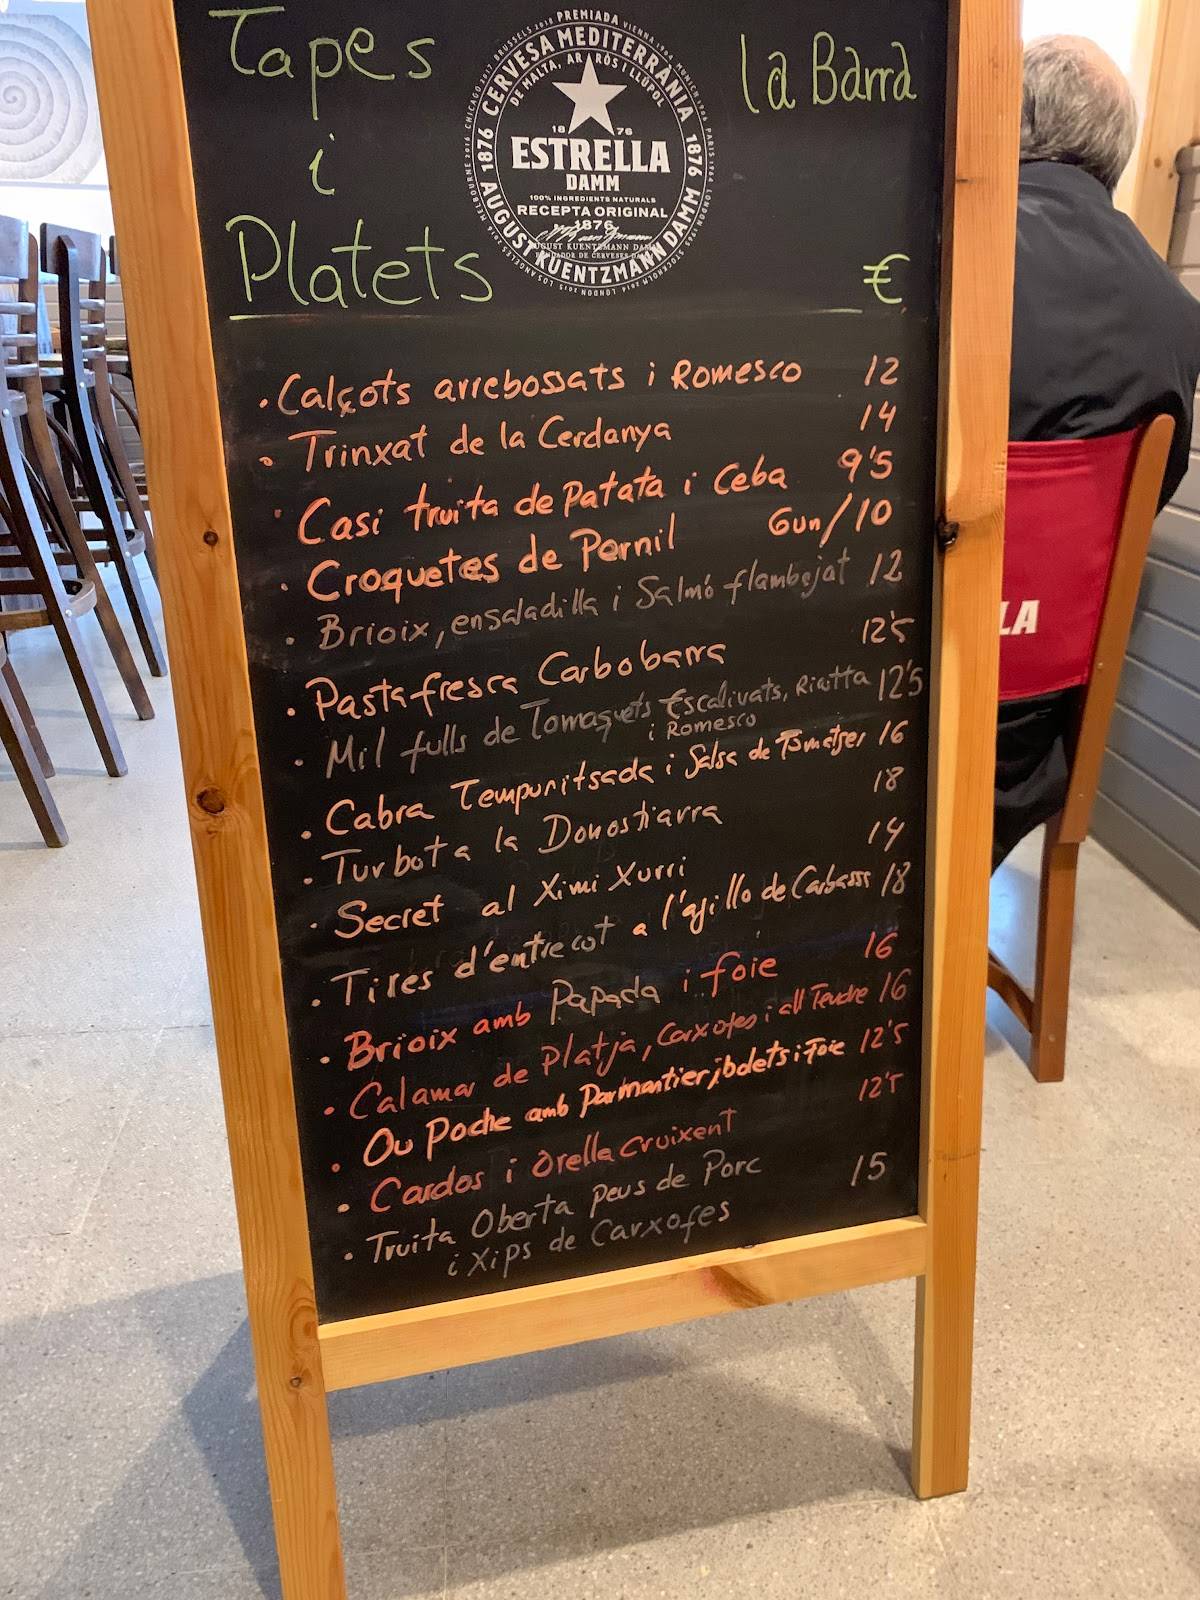 Tapes
i
Platets
la Barra
€
PREMIADA
CERVESA MEDITERRÀNIA
DE MALTA, ARRÒS I LLÚPOL
1876
1876
18 76
ESTRELLA
DAMM
100% INGREDIENTS NATURALS
RECEPTA ORIGINAL
1876
AUGUST KUENTZMANN DAMM
AUGUST KUENTZMANN DAMM
FUNDADOR DE CERVESES DAMM
· Calçots arrebossats i Romesco 12
· Trinxat de la Cerdanya 14
· Casi truita de patata i Ceba 9'5
· Croquetes de Pernil 6un/10
· Brioix, ensaladilla i Salmó flambejat 12
· Pasta fresca Carbobarra 12'5
· Mil fulls de Tomaquets Escalivats, Ricotta 12'5
i Romesco
· Cabra Tempuritsada i Salsa de Tomàtger 16
· Turbot a la Donostiarra 18
· Secret al Ximi Xurri 14
· Tires d'entrecot a l'ajillo de Carbasss 18
· Brioix amb Papada i foie 16
· Calamar de Platja, Carxofes i all Tendre 16
· Ou Poche amb Parmantier, bolets i Foie 12'5
· Cardos i Orella cruixent 12'5
· Truita Oberta peus de Porc 15
i Xips de Carxofes
LA